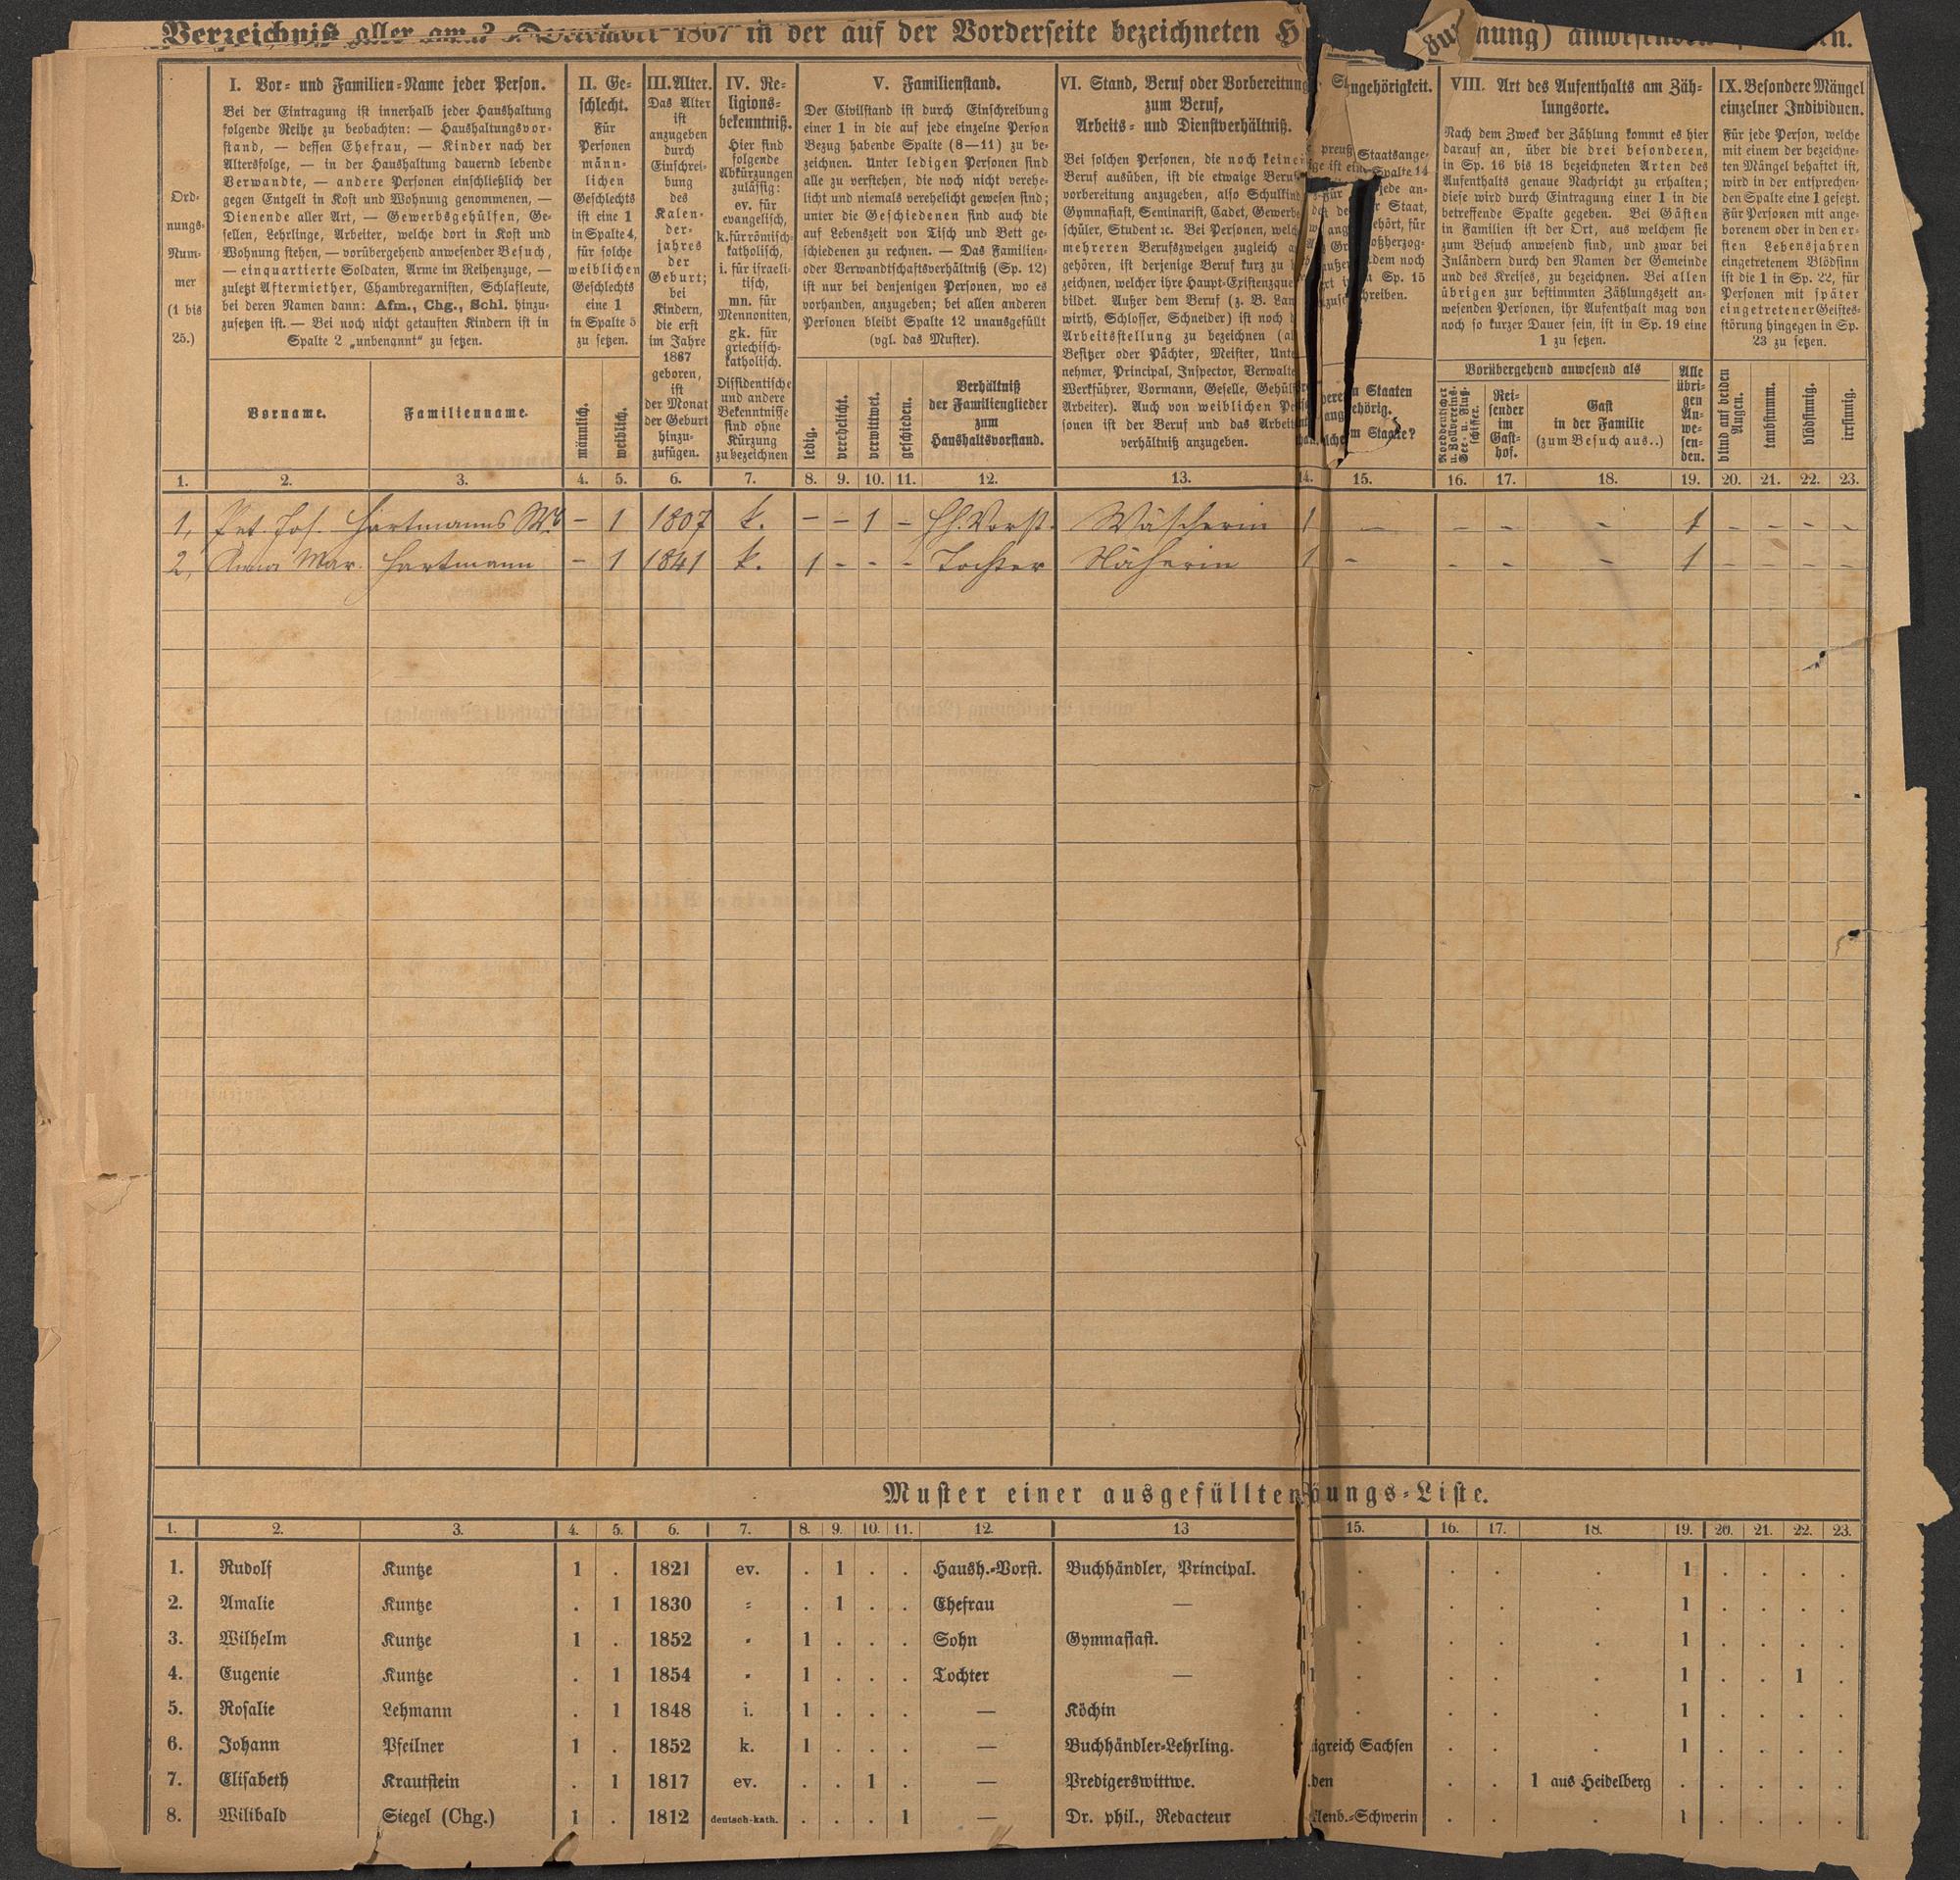 Verzeichniß aller am 3. December 1867 in der auf der Vorderseite bezeichneten H
nung) anwesenden
Ord-
nungs-
Num-
mer
(1 bis
25.)
I. Vor- und Familien-Name jeder Person.
Bei der Eintragung ist innerhalb jeder Haushaltung
folgende Reihe zu beobachten: — Haushaltungsvor-
stand, — dessen Ehefrau, — Kinder nach der
Altersfolge, — in der Haushaltung dauernd lebende
Verwandte, — andere Personen einschließlich der
gegen Entgelt in Kost und Wohnung genommenen, —
Dienende aller Art, — Gewerbsgehülfen, Ge-
sellen, Lehrlinge, Arbeiter, welche dort in Kost und
Wohnung stehen, — vorübergehend anwesender Besuch,
— einquartierte Soldaten, Arme im Reihenzuge, —
zuletzt Aftermiether, Chambregarnisten, Schlafleute,
bei deren Namen dann: Afm., Chg., Schl. hinzu-
zusetzen ist. — Bei noch nicht getauften Kindern ist in
Spalte 2 „unbenannt“ zu setzen.
Vorname.
Familienname.
II. Ge-
schlecht.
Für
Personen
männ-
lichen
Geschlechts
ist eine 1
in Spalte 4,
für solche
weiblichen
Geschlechts
eine 1
in Spalte 5
zu setzen.
männlich.
weiblich.
III. Alter.
Das Alter
ist
anzugeben
durch
Einschrei-
bung
des
Kalen-
der-
jahres
der
Geburt;
bei
Kindern,
die erst
im Jahre
1867
geboren,
ist
der Monat
der Geburt
hinzu-
zufügen.
IV. Re-
ligions-
bekenntniß.
Hier sind
folgende
Abkürzungen
zulässig:
ev. für
evangelisch,
k. für römisch-
katholisch,
i. für israeli-
tisch,
mn. für
Mennoniten,
gk. für
griechisch-
katholisch.
Dissidentische
und andere
Bekenntnisse
sind ohne
Kürzung
zu bezeichnen
V. Familienstand.
Der Civilstand ist durch Einschreibung
einer 1 in die auf jede einzelne Person
Bezug habende Spalte (8—11) zu be-
zeichnen. Unter ledigen Personen sind
alle zu verstehen, die noch nicht verehe-
licht und niemals verehelicht gewesen sind;
unter die Geschiedenen sind auch die
auf Lebenszeit von Tisch und Bett ge-
schiedenen zu rechnen. — Das Familien-
oder Verwandtschaftsverhältniß (Sp. 12)
ist nur bei denjenigen Personen, wo es
vorhanden, anzugeben; bei allen anderen
Personen bleibt Spalte 12 unausgefüllt
(vgl. das Muster).
ledig.
verehelicht.
verwittwet.
geschieden.
Verhältniß
der Familienglieder
zum
Haushaltsvorstand.
VI. Stand, Beruf oder Vorbereitung
zum Beruf,
Arbeits- und Dienstverhältniß.
Bei solchen Personen, die noch keinen
Beruf ausüben, ist die etwaige Berufs
vorbereitung anzugeben, also Schulkind
Gymnasiast, Seminarist, Cadet, Gewerbe
schüler, Student ꝛc. Bei Personen, welche
mehreren Berufszweigen zugleich a
gehören, ist derjenige Beruf kurz zu
zeichnen, welcher ihre Haupt-Existenzquel
bildet. Außer dem Beruf (z. B. Lan
wirth, Schlosser, Schneider) ist noch d
Arbeitsstellung zu bezeichnen (al
Besitzer oder Pächter, Meister, Unte
nehmer, Principal, Inspector, Verwalte
Werkführer, Vormann, Geselle, Gehülf
Arbeiter). Auch von weiblichen Pe
sonen ist der Beruf und das Arbeits
verhältniß anzugeben.
Staatsange-
Spalte 14
jede an-
Staat,
ehört, für
oßherzog-
dem noch
Sp. 15
chreiben.
Staaten
ehörig.
Staate?
VIII. Art des Aufenthalts am Zäh-
lungsorte.
Nach dem Zweck der Zählung kommt es hier
darauf an, über die drei besonderen,
in Sp. 16 bis 18 bezeichneten Arten des
Aufenthalts genaue Nachricht zu erhalten;
diese wird durch Eintragung einer 1 in die
betreffende Spalte gegeben. Bei Gästen
in Familien ist der Ort, aus welchem sie
zum Besuch anwesend sind, und zwar bei
Inländern durch den Namen der Gemeinde
und des Kreises, zu bezeichnen. Bei allen
übrigen zur bestimmten Zählungszeit an-
wesenden Personen, ihr Aufenthalt mag von
noch so kurzer Dauer sein, ist in Sp. 19 eine
1 zu setzen.
Vorübergehend anwesend als
Norddeutscher
u. Zollvereins-
See- u. Fluß-
schiffer.
Rei-
sender
im
Gast-
hof.
Gast
in der Familie
(zum Besuch aus..)
Alle
übri-
gen
An-
we-
sen-
den.
IX. Besondere Mängel
einzelner Individuen.
Für jede Person, welche
mit einem der bezeichne-
ten Mängel behaftet ist,
wird in der entsprechen-
den Spalte eine 1 gesetzt.
Für Personen mit ange-
borenem oder in den er-
sten Lebensjahren
eingetretenem Blödsinn
ist die 1 in Sp. 22, für
Personen mit später
eingetretener Geistes-
störung hingegen in Sp.
23 zu setzen.
blind auf beiden
Augen.
taubstumm.
blödsinnig.
irrsinnig.
1. 2. 3. 4. 5. 6. 7. 8. 9. 10. 11. 12. 13. 14. 15. 16. 17. 18. 19. 20. 21. 22. 23.
1, Pet. Jos. Hartmanns Wb – 1 1807 k. – – 1 – Hh. Vorst. Wäscherin 1 – – – – 1 – – – –
2, Anna Mar. Hartmann – 1 1841 k. 1 – – – Tochter Näherin 1 – – – – 1 – – – –
Muster einer ausgefüllten ungs-Liste.
1. 2. 3. 4. 5. 6. 7. 8. 9. 10. 11. 12. 13 15. 16. 17. 18. 19. 20. 21. 22. 23.
1. Rudolf Kuntze 1 . 1821 ev. . 1 . . Haush.-Vorst. Buchhändler, Principal. . . . . 1 . . . .
2. Amalie Kuntze . 1 1830 = . 1 . . Ehefrau — 1 . . . . 1 . . . .
3. Wilhelm Kuntze 1 . 1852 " 1 . . . Sohn Gymnasiast. 1 . . . . 1 . . . .
4. Eugenie Kuntze . 1 1854 " 1 . . . Tochter — 1 . . . . 1 . . 1 .
5. Rosalie Lehmann . 1 1848 i. 1 . . . — Köchin . . . . 1 . . . .
6. Johann Pfeilner 1 . 1852 k. 1 . . . — Buchhändler-Lehrling. igreich Sachsen . . . 1 . . . .
7. Elisabeth Krautstein . 1 1817 ev. . . 1 . — Predigerswittwe. den . . 1 aus Heidelberg . . . . .
8. Wilibald Siegel (Chg.) 1 . 1812 deutsch-kath. . . . 1 — Dr. phil., Redacteur lenb.-Schwerin . . . 1 . . . .